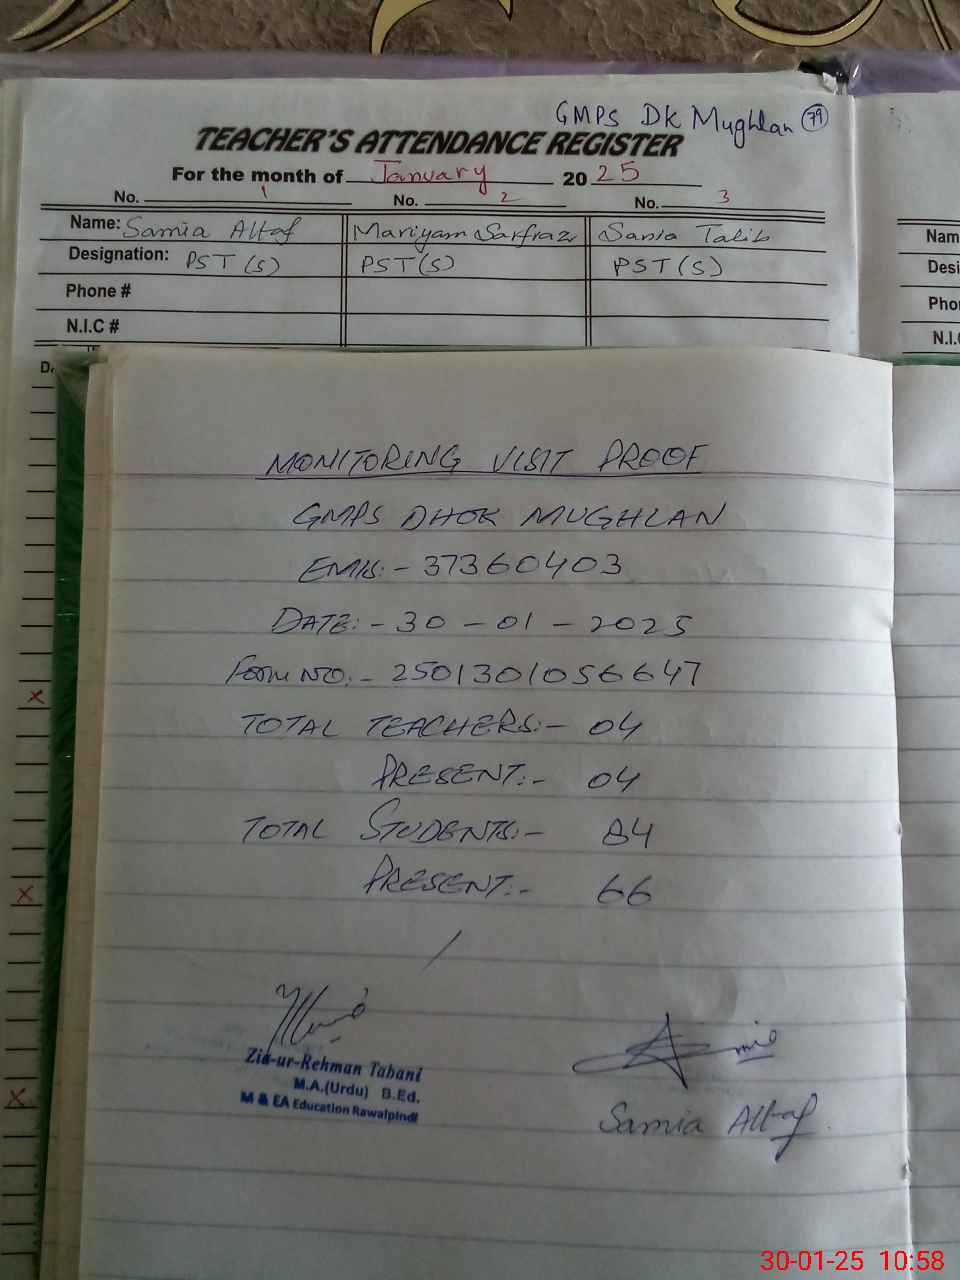 GMPS DK Mughlan 79
TEACHER'S ATTENDANCE REGISTER
For the month of January 2025
No. 1 No. 2 No. 3
Name: Samia Altaf Mariyam Sarfraz Sania Talib
Designation: PST(S) PST(S) PST(S)
Phone #
N.I.C #
Nam
Desi
Pho
N.I.
D
MONITORING VISIT PROOF
GMPS DHOK MUGHLAN
EMIS:- 37360403
DATE:- 30-01-2025
Form NO:- 2501301056647
TOTAL TEACHERS:- 04
PRESENT:- 04
TOTAL STUDENTS:- 84
PRESENT:- 66
Zia-ur-Rehman Tabani
M.A.(Urdu) B.Ed.
M & EA Education Rawalpindi
Samia Altaf
30-01-25 10:58